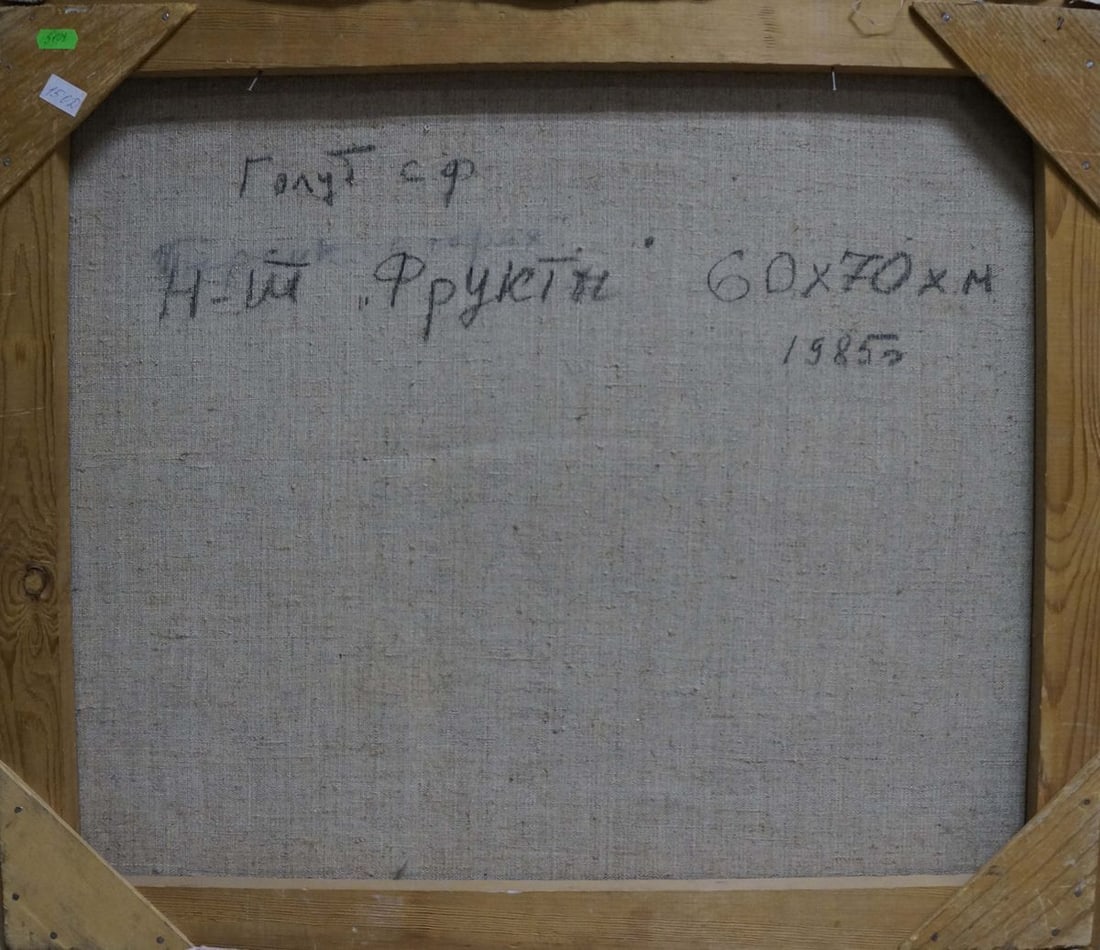 1502
Голуб С Ф
Н-ШТ „Фрукти" 60х70 х м
1985г